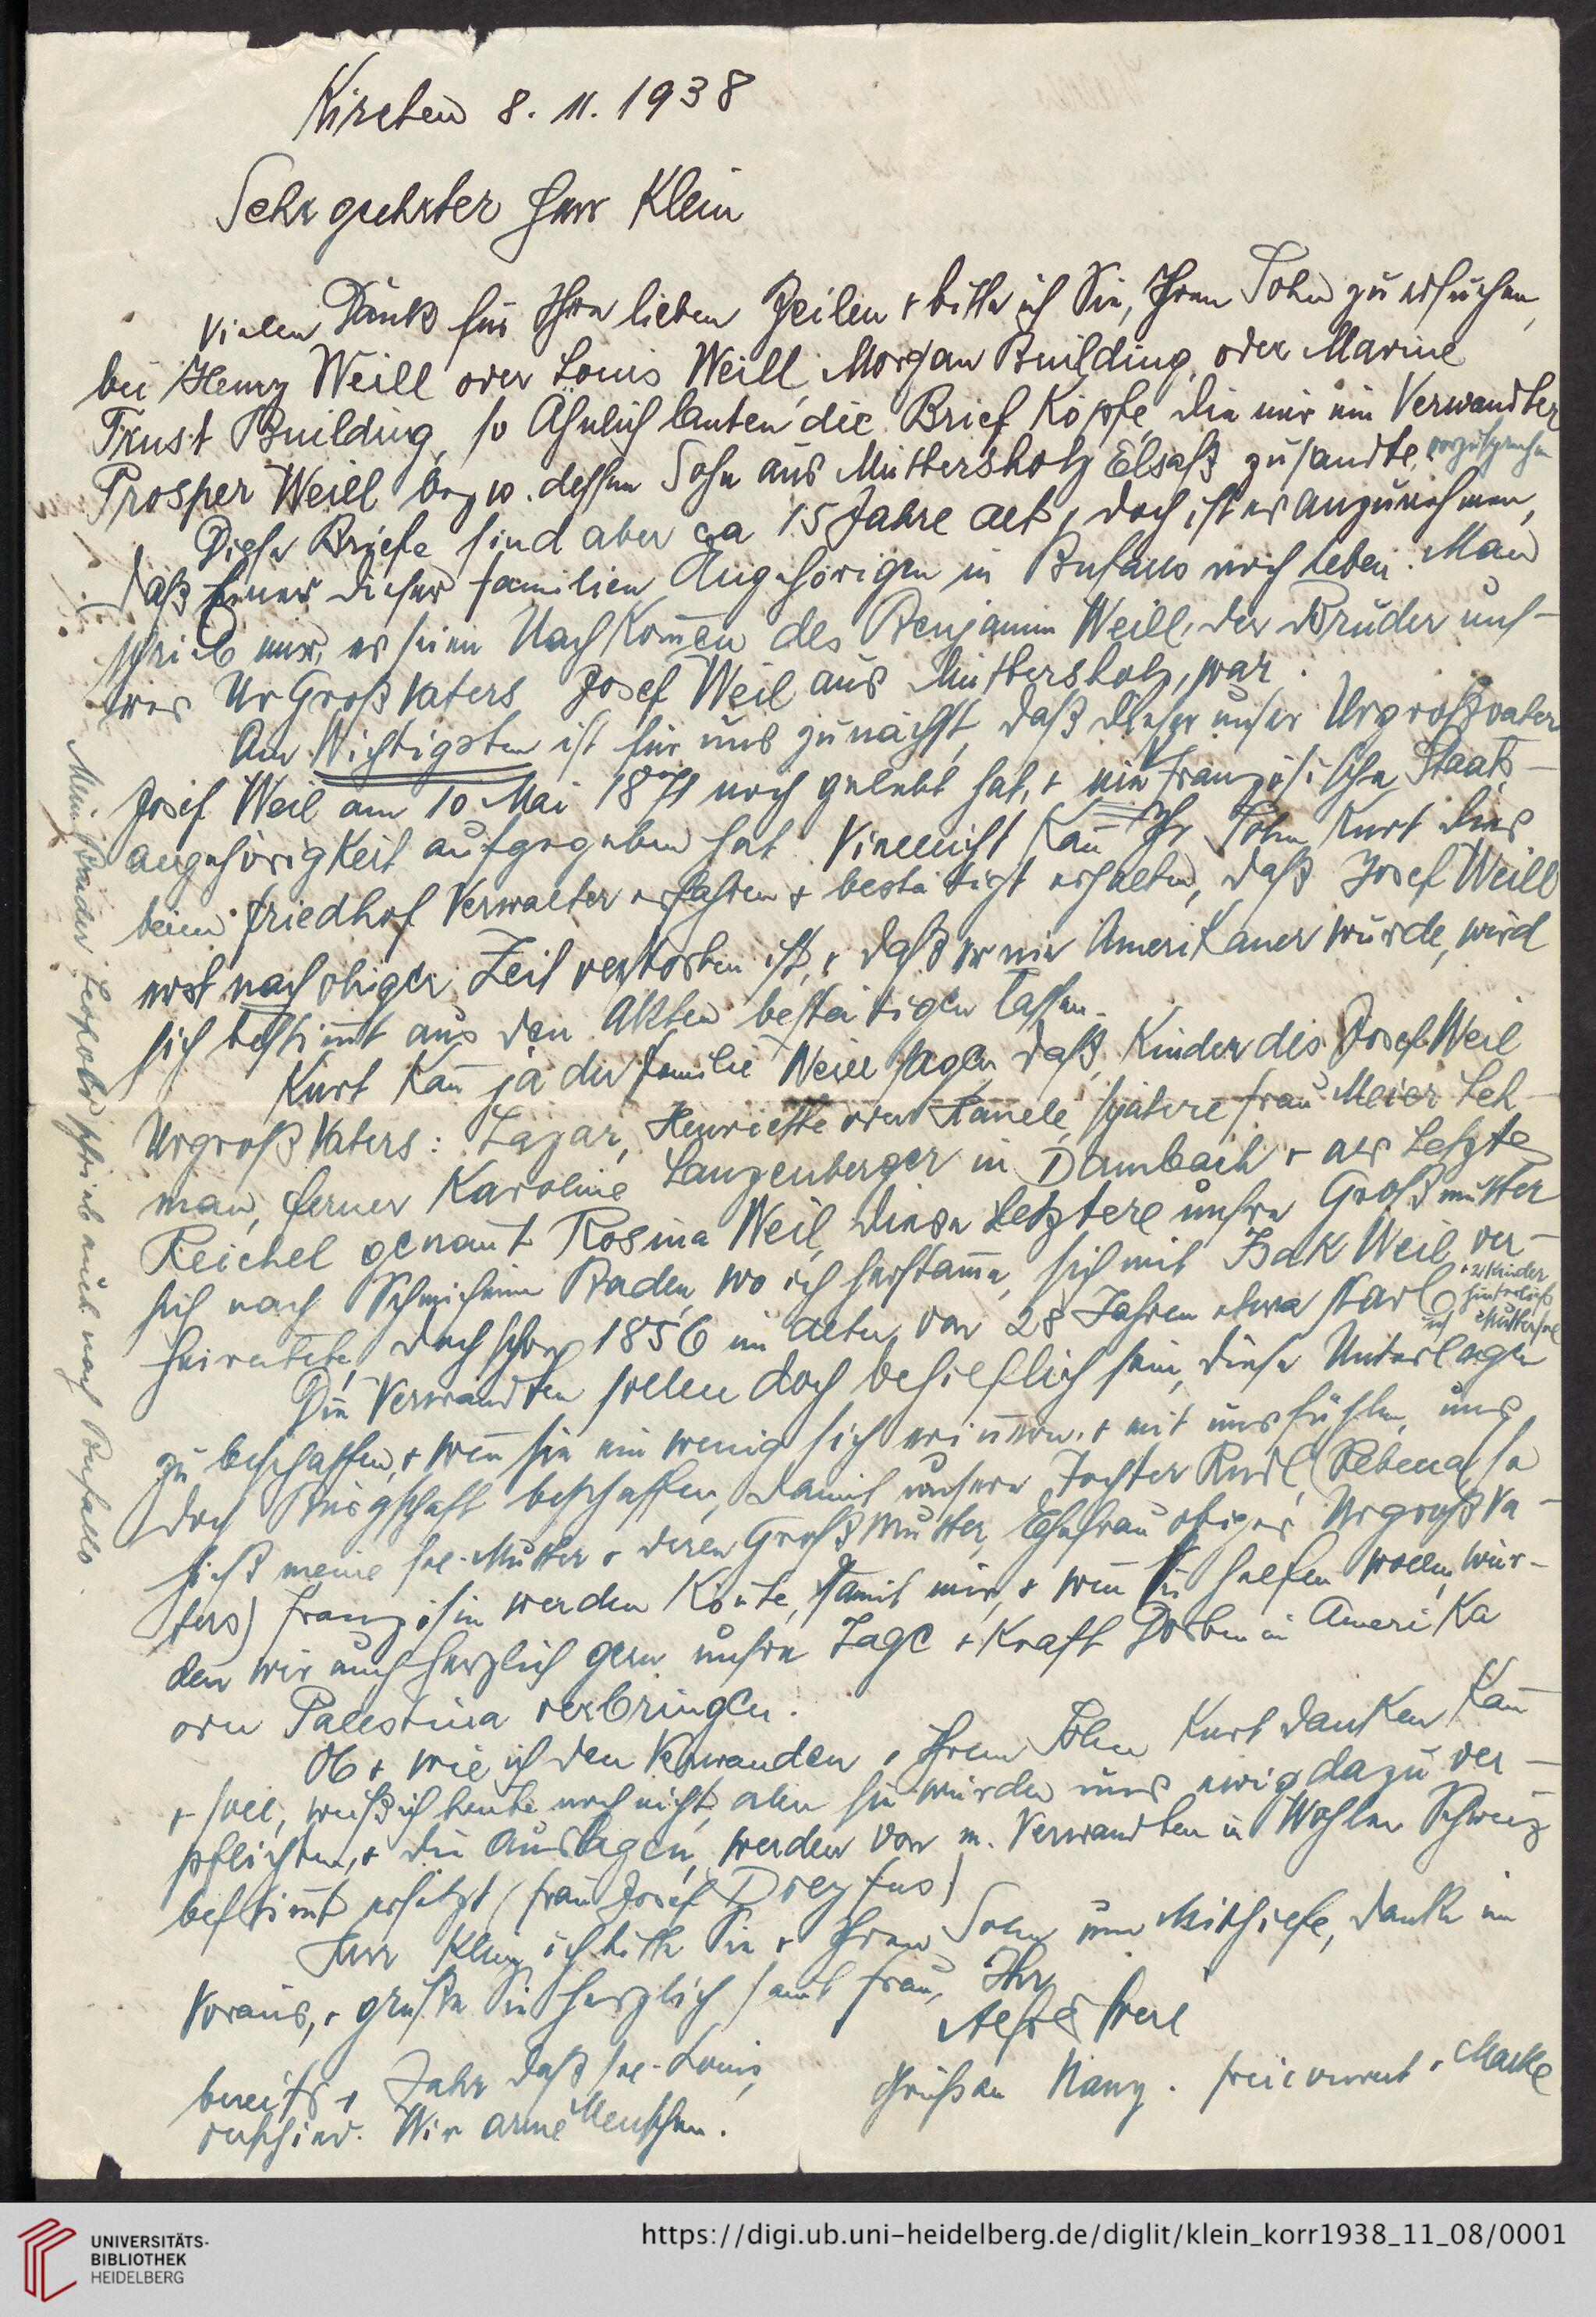 Kirchen 8. 11. 1938
Sehr geehrter Herr Klein
Vielen Dank für Ihre lieben Zeilen & bitte ich Sie, Ihren Sohn zu ersuchen,
bei Henry Weill oder Louis Weill, Morgan Building, oder Marine
Trust Building, so Ähnlich lauten die Brief Köpfe, die mir ein Verwandter
Prosper Weill bezw. dessen Sohn aus Muttersholz Elsaß zusandte, vorzusprechen
Diese Briefe sind aber ca 15 Jahre alt, doch ist es anzunehmen,
daß Einer dieser Familien Angehörigen in Bufalo noch leben. Man
schrieb mir, es seien Nachkom̄en des Benjamin Weill, der Bruder uns-
eres UrGroßvaters Josef Weil aus Muttersholz, war.
Am Wichtigsten ist für uns zunächst, daß dieser unser Urgroßvater
Josef Weil am 10 Mai 1871 noch gelebt hat, & nie französische Staats-
angehörigkeit aufgegeben hat. Vielleicht kan̄ Ihr Sohn Kurt dies
beim Friedhof Verwalter erfahren & bestätigt erhalten, daß Josef Weill
erst nach obiger Zeit verstorben ist, & daß er nie Amerikaner wurde, wird
sich bestim̄t aus den Akten bestätigen lassen.
Kurt kan̄ ja der Familie Weill sagen, daß Kinder des Josef Weil
Urgroßvaters: Lazar, Henriette oder Hanele, spätere Frau Meier Leh-
man, ferner Karoline Lanzenberger in Dambach & als Letzte
Reichel genan̄t Rosina Weil, diese Letztere unsre Großmutter
sich nach Schmieheim Baden, wo ich herstam̄e, sich mit Isak Weil ver-
heiratete, doch schon 1856 im Alter von 28 Jahren etwa starb & 2 Kinder hinterließ
Die Verwandten sollen doch behilflich sein, diese Unterlagen
zu beschaffen, & wen̄ sie ein wenig sich erin̄ern & mit uns fühlen, uns
doch Bürgschaft beschaffen, damit unsere Tochter Rudl (Rebena so
hieß meine sel. Mutter & deren Großmutter, Ehefrau obiges Urgroßva-
ters) Französin werden kön̄te, damit wir, & wen̄ Sie helfen wollen, wür-
den wir auch herzlich gern unsre Tage & Kraft dorten in Amerika
oder Palestina verbringen.
Ob & wie ich den Verwandten & Ihrem Sohn Kurt danken kan̄
& soll, weiß ich heute noch nicht, aber sie würden uns ewig dazu ver-
pflichten, & die Auslagen werden von m. Verwandten in Wohlen Schweiz
bestim̄t ersetzt (Frau Josef Dreyfus)
Herr Klein ich bitte Sie & Ihren Sohn um Mithilfe, danke im
Voraus, & grüße Sie herzlich samt Frau, Ihr
Alfred Weil
bereits 1 Jahr daß sel. Louis,
verschied. Wir arme Menschen.
Grüßen Nanz. freicouvert & Marke
Mein Bruder Leopold schrieb auch nach Bufallo.
UNIVERSITÄTS-
BIBLIOTHEK
HEIDELBERG
https://digi.ub.uni-heidelberg.de/diglit/klein_korr1938_11_08/0001